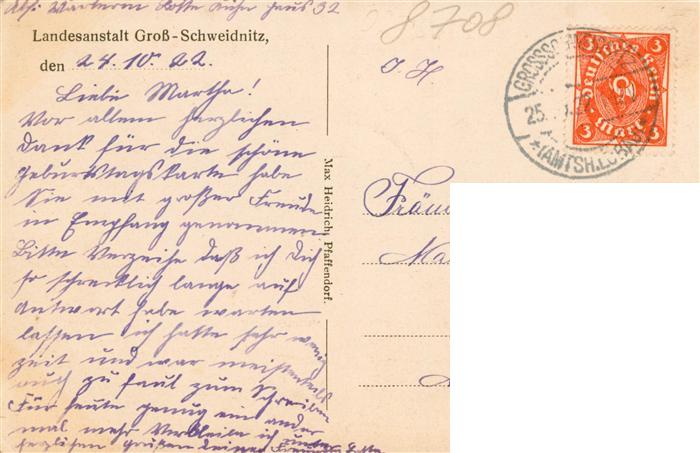 Abs: Wärterin Lotte Kühn Haus 32
8708
Landesanstalt Groß-Schweidnitz,
den 24.10.22.
Liebe Martha!
Vor allem herzlichen
Dank für die schöne
Geburtstagskarte habe
Sie mit großer Freude
in Empfang genommen
Bitte Verzeihe daß ich Dich
so schrecklich lange auf
Antwort habe warten
lassen ich hatte sehr wenig
zeit und war meistenteils
auch zu faul zum Schreiben
Für heute genug ein ander
mal mehr Verbleibe ich unter
herzlichen Grüßen deine Freundin Lotte
Max Heidrich, Pfaffendorf.
I. H.
GROSSSCH
25.
(AMTSH. LÖBAU)
3 3
Deutsches Reich
3 Mark 3
Fräu
Ma